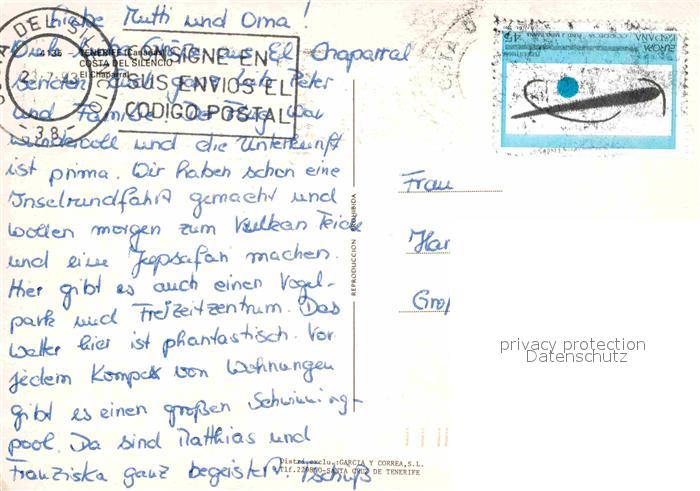 Liebe Mutti und Oma!
Grüße aus El Chaparral
135 TENERIFE (Canarias)
COSTA DEL SILENCIO
El Chaparral
CONSIGNE EN
SUS ENVIOS EL
CODIGO POSTAL
COSTA DEL SILENCIO
- 38 -
senden euch ganz Peter
und Familie. Der Flug war
wundervoll und die Unterkunft
ist prima. Wir haben schon eine
Inselrundfahrt gemacht und
wollen morgen zum Vulkan Teide
und eine Jepsafari machen.
Hier gibt es auch einen Vogel-
park und Freizeitzentrum. Das
Wetter hier ist phantastisch. Vor
jedem Komplex von Wohnungen
gibt es einen großen Schwimming-
pool. Da sind Matthias und
Franziska ganz begeistert. Tschüß
REPRODUCCION PROHIBIDA
Distri.exclu.:GARCIA Y CORREA,S.L.
Tlf.229850-SANTA CRUZ DE TENERIFE
EUROPA
ESPAÑA
45
Frau
Har
Groß
privacy protection
Datenschutz